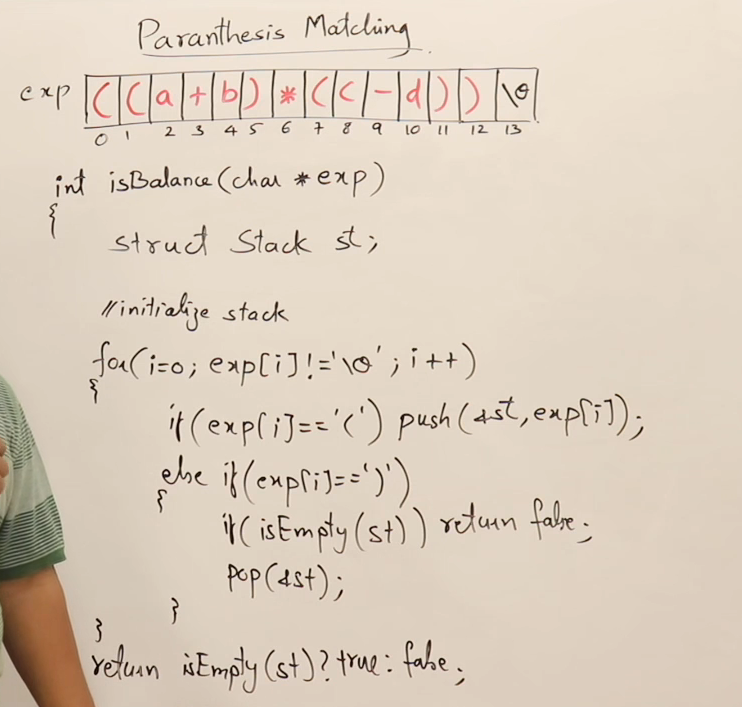 Paranthesis Matching
exp ( ( a + b ) * ( c - d ) ) \0
0 1 2 3 4 5 6 7 8 9 10 11 12 13
int isBalance(char *exp)
{
struct Stack st;
//initialize stack
for(i=0; exp[i]!='\0'; i++)
{
if(exp[i]=='(') push(&st,exp[i]);
else if(exp[i]==')')
{
if(isEmpty(st)) return false;
pop(&st);
}
}
return isEmpty(st)?true:false;